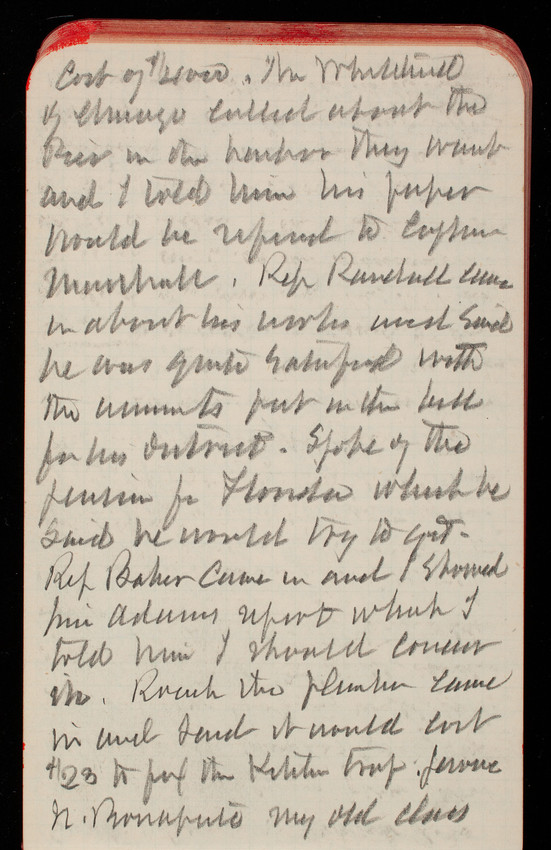 Cost of $2000. Mr Whitehead
of Chicago called about the
Pier in the harbor they want
and I told him his paper
would be referred to Captain
Marshall. Rep Randall came
in about his works and said
he was quite satisfied with
the amounts put in the bill
for his district. Spoke of the
pension for which he
said he would try to get.
Rep Baker came in and I showed
him Adams report which I
told him I should concur
in. Roach the plumber came
in and said it would cost
$23 to fix the Kitchen trap. Jerome
N. Bonaparte my old class